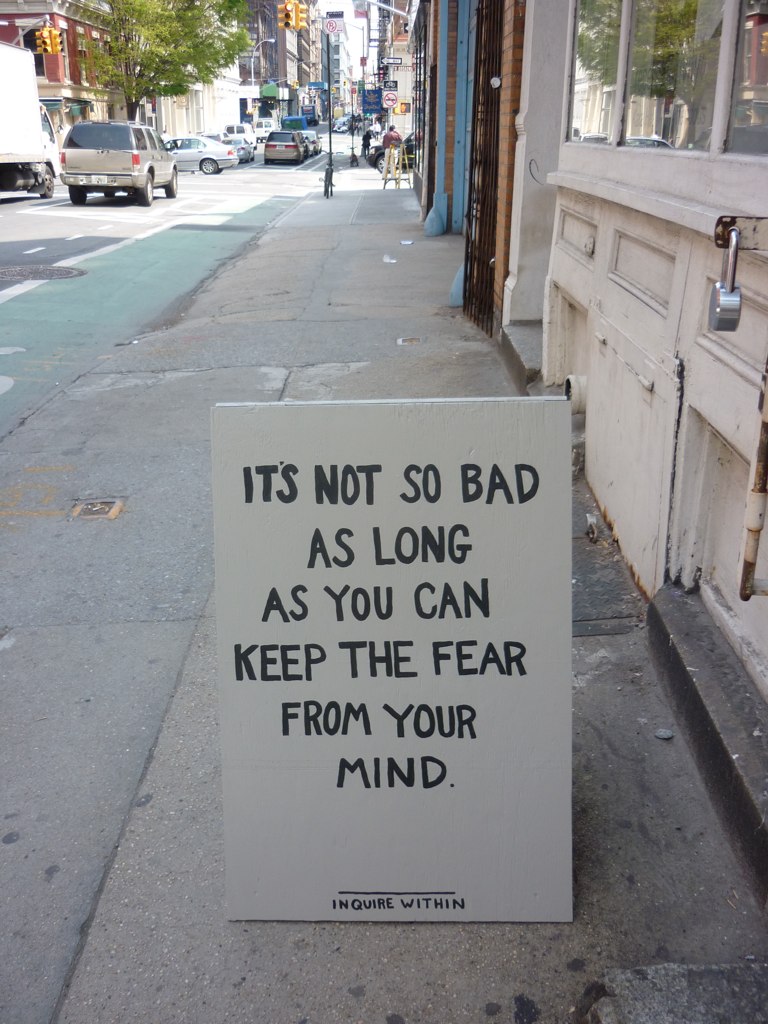 IT'S NOT SO BAD
AS LONG
AS YOU CAN
KEEP THE FEAR
FROM YOUR
MIND.
INQUIRE WITHIN